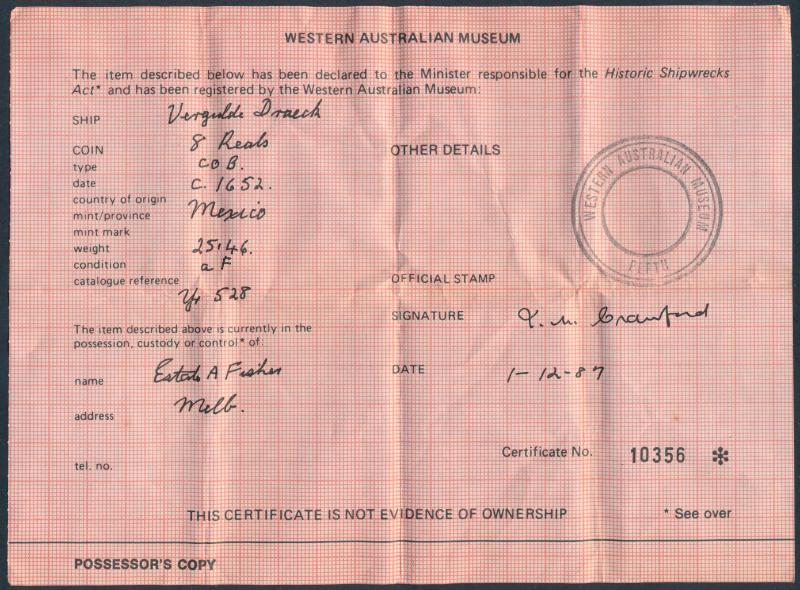 WESTERN AUSTRALIAN MUSEUM
The item described below has been declared to the Minister responsible for the Historic Shipwrecks
Act* and has been registered by the Western Australian Museum:
SHIP Vergulde Draeck
COIN 8 Reals
type COB.
date C. 1652.
country of origin
mint/province Mexico
mint mark
weight 25.46.
condition a F
catalogue reference
528
OTHER DETAILS
WESTERN AUSTRALIAN MUSEUM
PERTH
OFFICIAL STAMP
SIGNATURE Crawford
DATE 1-12-87
The item described above is currently in the
possession, custody or control* of:
name A Fisher
address Melb.
tel. no.
Certificate No. 10356 *
THIS CERTIFICATE IS NOT EVIDENCE OF OWNERSHIP
* See over
POSSESSOR'S COPY